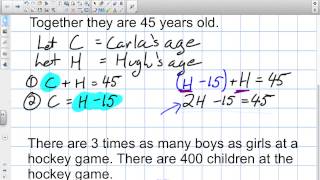 Together they are 45 years old.
Let C = Carla's age
Let H = Hugh's age
① C + H = 45
② C = H - 15
(H - 15) + H = 45
2H - 15 = 45
There are 3 times as many boys as girls at a
hockey game. There are 400 children at the
hockey game.